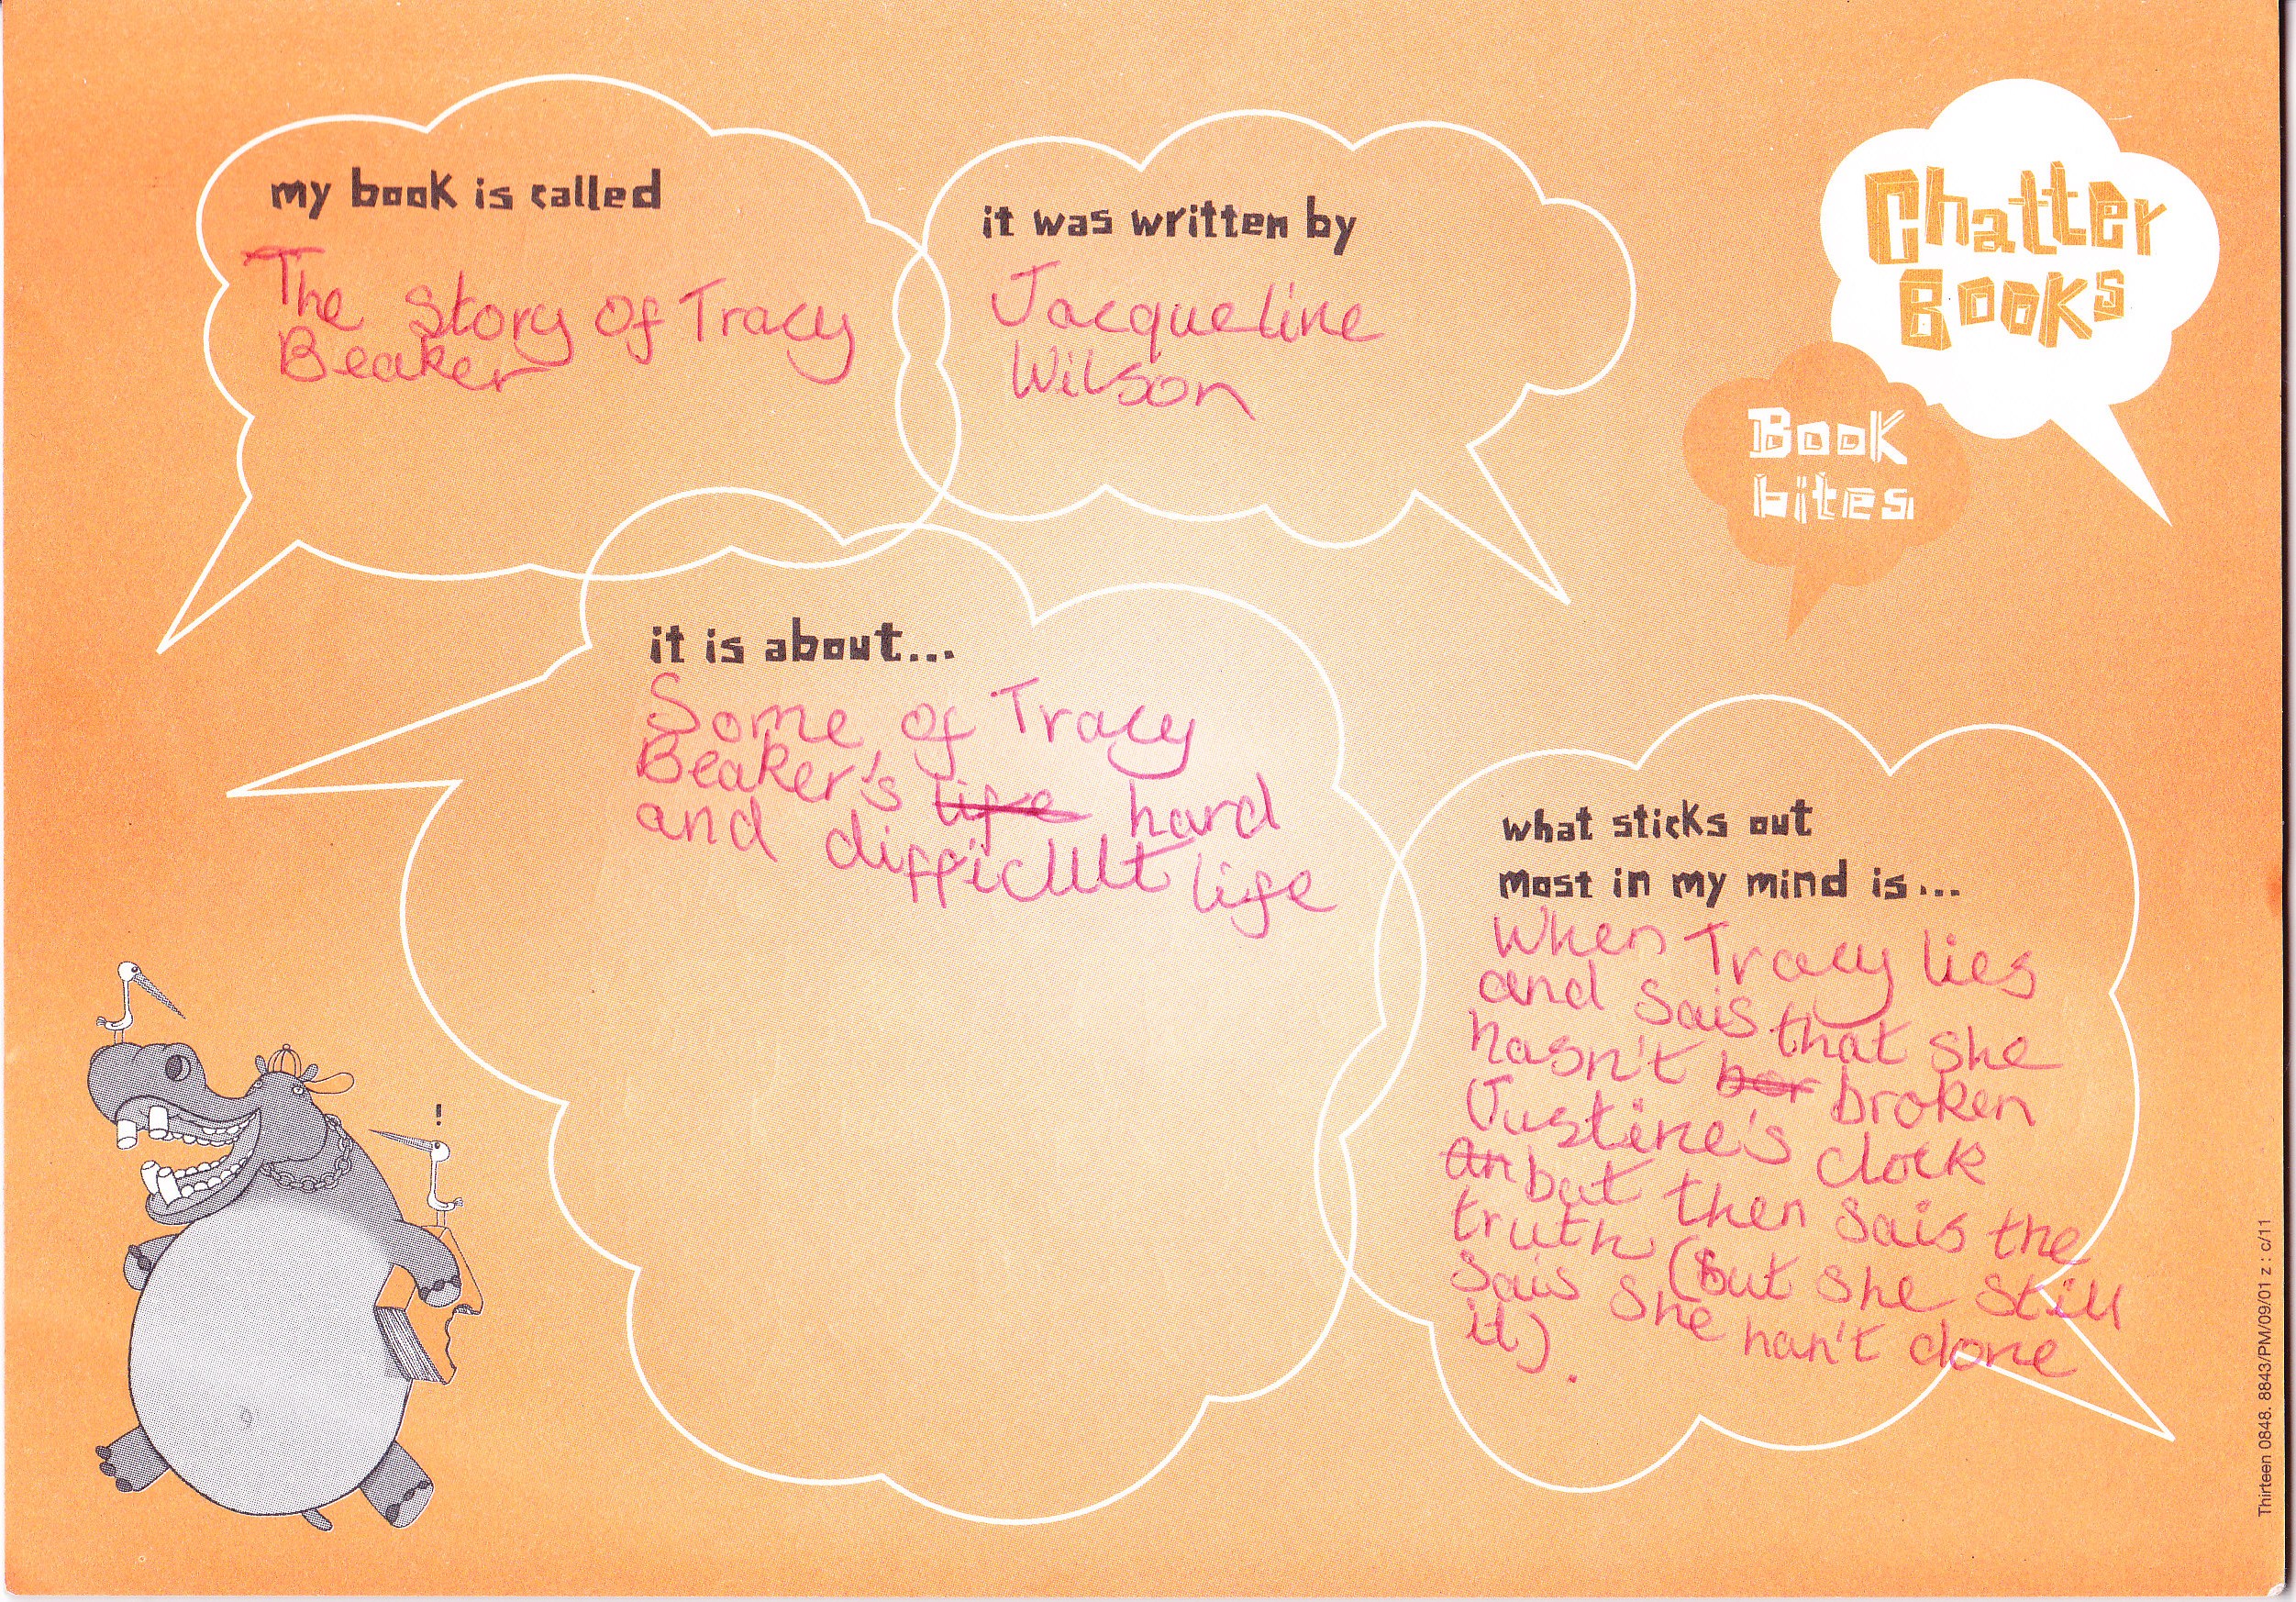 my book is called
The story of Tracy
Beaker
it was written by
Jacqueline
Wilson
Chatter
Books
Book
bites
it is about...
Some of Tracy
Beaker's life hard
and difficult life
what sticks out
most in my mind is...
When Tracy lies
and sais that she
hasn't bor broken
Justine's clock
an but then sais the
truth (but she still
sais she han't done
it).
!
Thirteen 0848. 8843/PM/09/01 z : c/11